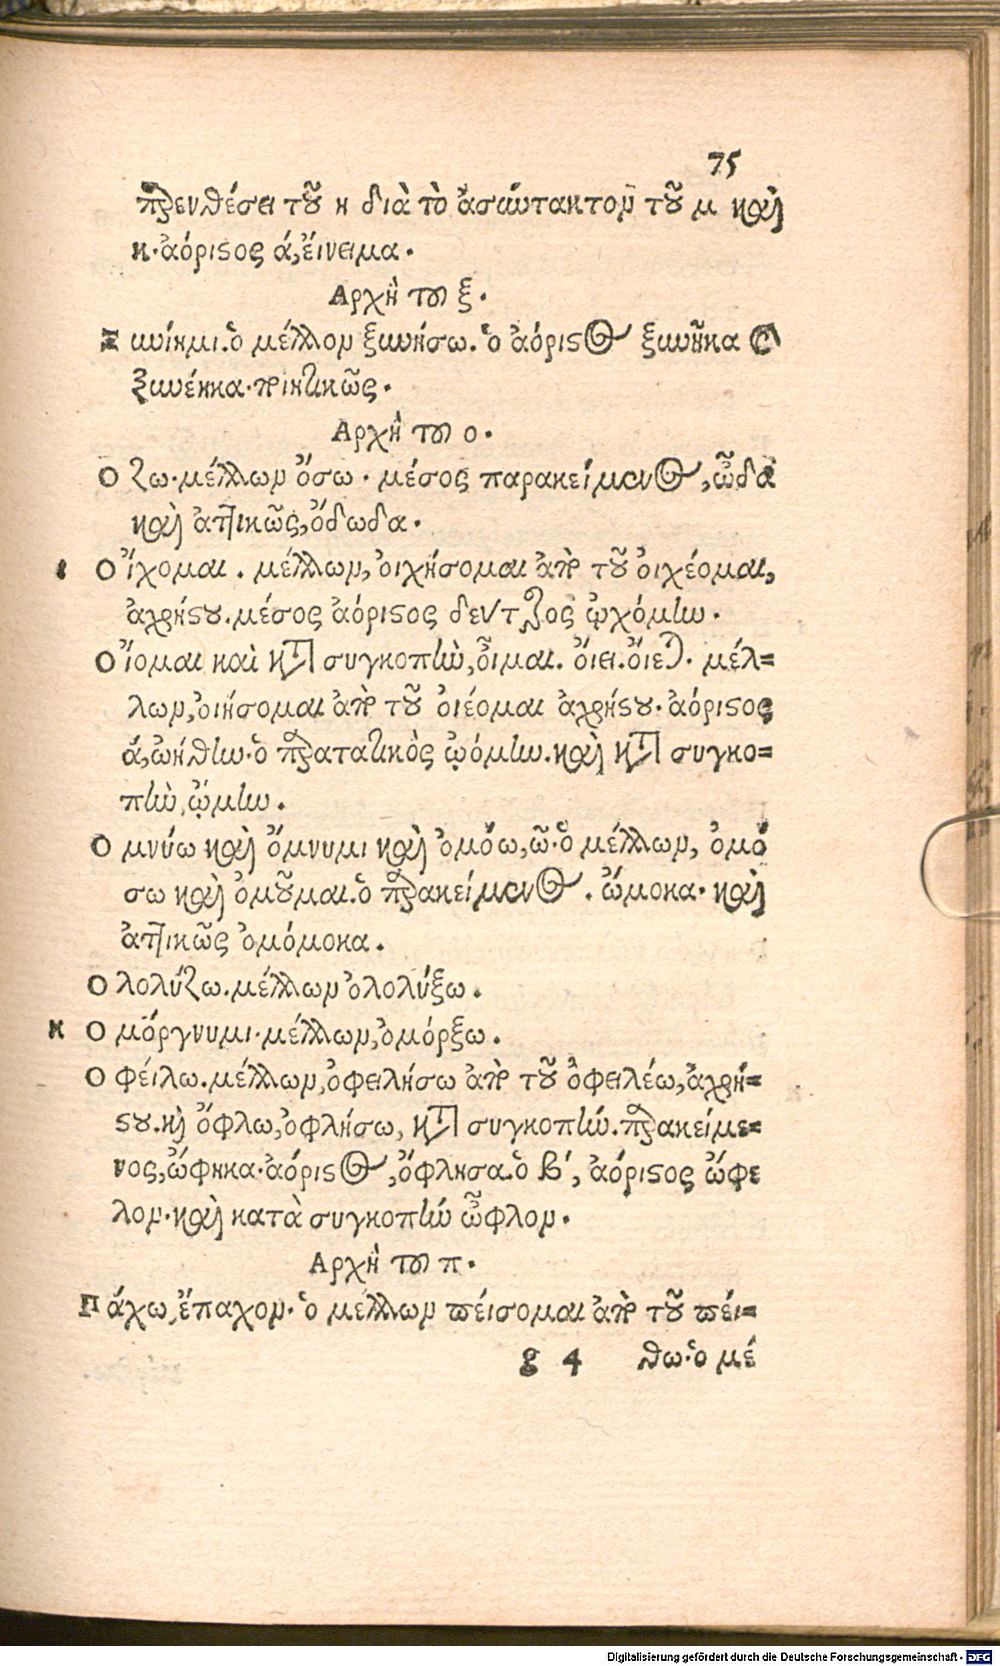 75
παρενθέσει τοῦ η διὰ τὸ ἀσύντακτον τοῦ μ καὶ
κ. ἀόριστος ά, ἔινειμα.
Αρχὴ τοῦ ξ.
Ξ υνίημι. ὁ μέλλον ξυνήσω. ὁ ἀόριστος ξυνῆκα καὶ
ξυνέηκα. ποιητικῶς.
Αρχὴ τοῦ ο.
Ο ζω. μέλλων ὄσω. μέσος παρακείμενος, ὦδα
καὶ ἀττικῶς, ὄδωδα.
ι Ο ἴχομαι. μέλλων, ὀιχήσομαι ἀπὸ τοῦ ὀιχέομαι,
ἀχρήστου. μέσος ἀόριστος δεύτερος ᾠχόμην.
Ο ἴομαι καὶ κατὰ συγκοπὴν, οἶμαι. ὄιει. ὄιεται. μέλ=
λων, ὀιήσομαι ἀπὸ τοῦ ὀιέομαι ἀχρήστου. ἀόριστος
ά, ὠήθην. ὁ παρατατικὸς ᾠόμην. καὶ κατὰ συγκο=
πὴν, ᾤμην.
Ο μνύω καὶ ὄμνυμι καὶ ὀμόω, ῶ. ὁ μέλλων, ὀμό
σω καὶ ὀμοῦμαι. ὁ παρακείμενος. ὤμοκα. καὶ
ἀττικῶς ὀμόμοκα.
Ο λολύζω. μέλλων ὀλολύξω.
κ Ο μόργνυμι. μέλλων, ὀμόρξω.
Ο φείλω. μέλλων, ὀφειλήσω ἀπὸ τοῦ ὀφειλέω, ἀχρή=
στου. κὶ ὄφλω, ὀφλήσω, κατὰ συγκοπήν. παρακείμε=
νος, ὤφηκα. ἀόριστος, ὄφλησα. ὁ β΄, ἀόριστος ὤφε
λον. καὶ κατὰ συγκοπήν ὦφλον.
Αρχὴ τοῦ π.
Π άχω, ἔπαχον. ὁ μέλλων πέισομαι ἀπὸ τοῦ πέι=
g 4 θω. ὁ μέ
Digitalisierung gefördert durch die Deutsche Forschungsgemeinschaft - DFG